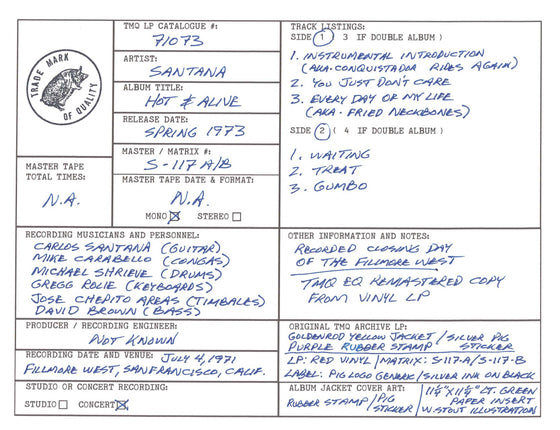 TMQ LP CATALOGUE #:
71073
TRADE MARK
OF QUALITY
ARTIST:
SANTANA
ALBUM TITLE:
HOT & ALIVE
RELEASE DATE:
SPRING 1973
MASTER / MATRIX #:
S-117 A/B
MASTER TAPE
TOTAL TIMES:
N.A.
MASTER TAPE DATE & FORMAT:
N.A.
MONO STEREO
TRACK LISTINGS:
SIDE 1 3 IF DOUBLE ALBUM )
1. INSTRUMENTAL INTRODUCTION
(AKA-CONQUISTADOR RIDES AGAIN)
2. YOU JUST DON'T CARE
3. EVERY DAY OF MY LIFE
(AKA-FRIED NECKBONES)
SIDE 2 ( 4 IF DOUBLE ALBUM )
1. WAITING
2. TREAT
3. GUMBO
RECORDING MUSICIANS AND PERSONNEL:
CARLOS SANTANA (GUITAR)
MIKE CARABELLO (CONGAS)
MICHAEL SHRIEVE (DRUMS)
GREGG ROLIE (KEYBOARDS)
JOSE CHEPITO AREAS (TIMBALES)
DAVID BROWN (BASS)
OTHER INFORMATION AND NOTES:
RECORDED CLOSING DAY
OF THE FILLMORE WEST
TMQ EQ REMASTERED COPY
FROM VINYL LP
PRODUCER / RECORDING ENGINEER:
NOT KNOWN
RECORDING DATE AND VENUE: JULY 4, 1971
FILLMORE WEST, SAN FRANCISCO, CALIF.
STUDIO OR CONCERT RECORDING:
STUDIO CONCERT
ORIGINAL TMQ ARCHIVE LP:
GOLDENROD YELLOW JACKET / SILVER PIG
PURPLE RUBBER STAMP STICKER
LP: RED VINYL / MATRIX: S-117-A/S-117-B
LABEL: PIG LOGO GENERIC / SILVER INK ON BLACK
ALBUM JACKET COVER ART:
RUBBER STAMP / PIG STICKER
11¼" X 11¼" LT. GREEN
PAPER INSERT
W. STOUT ILLUSTRATION